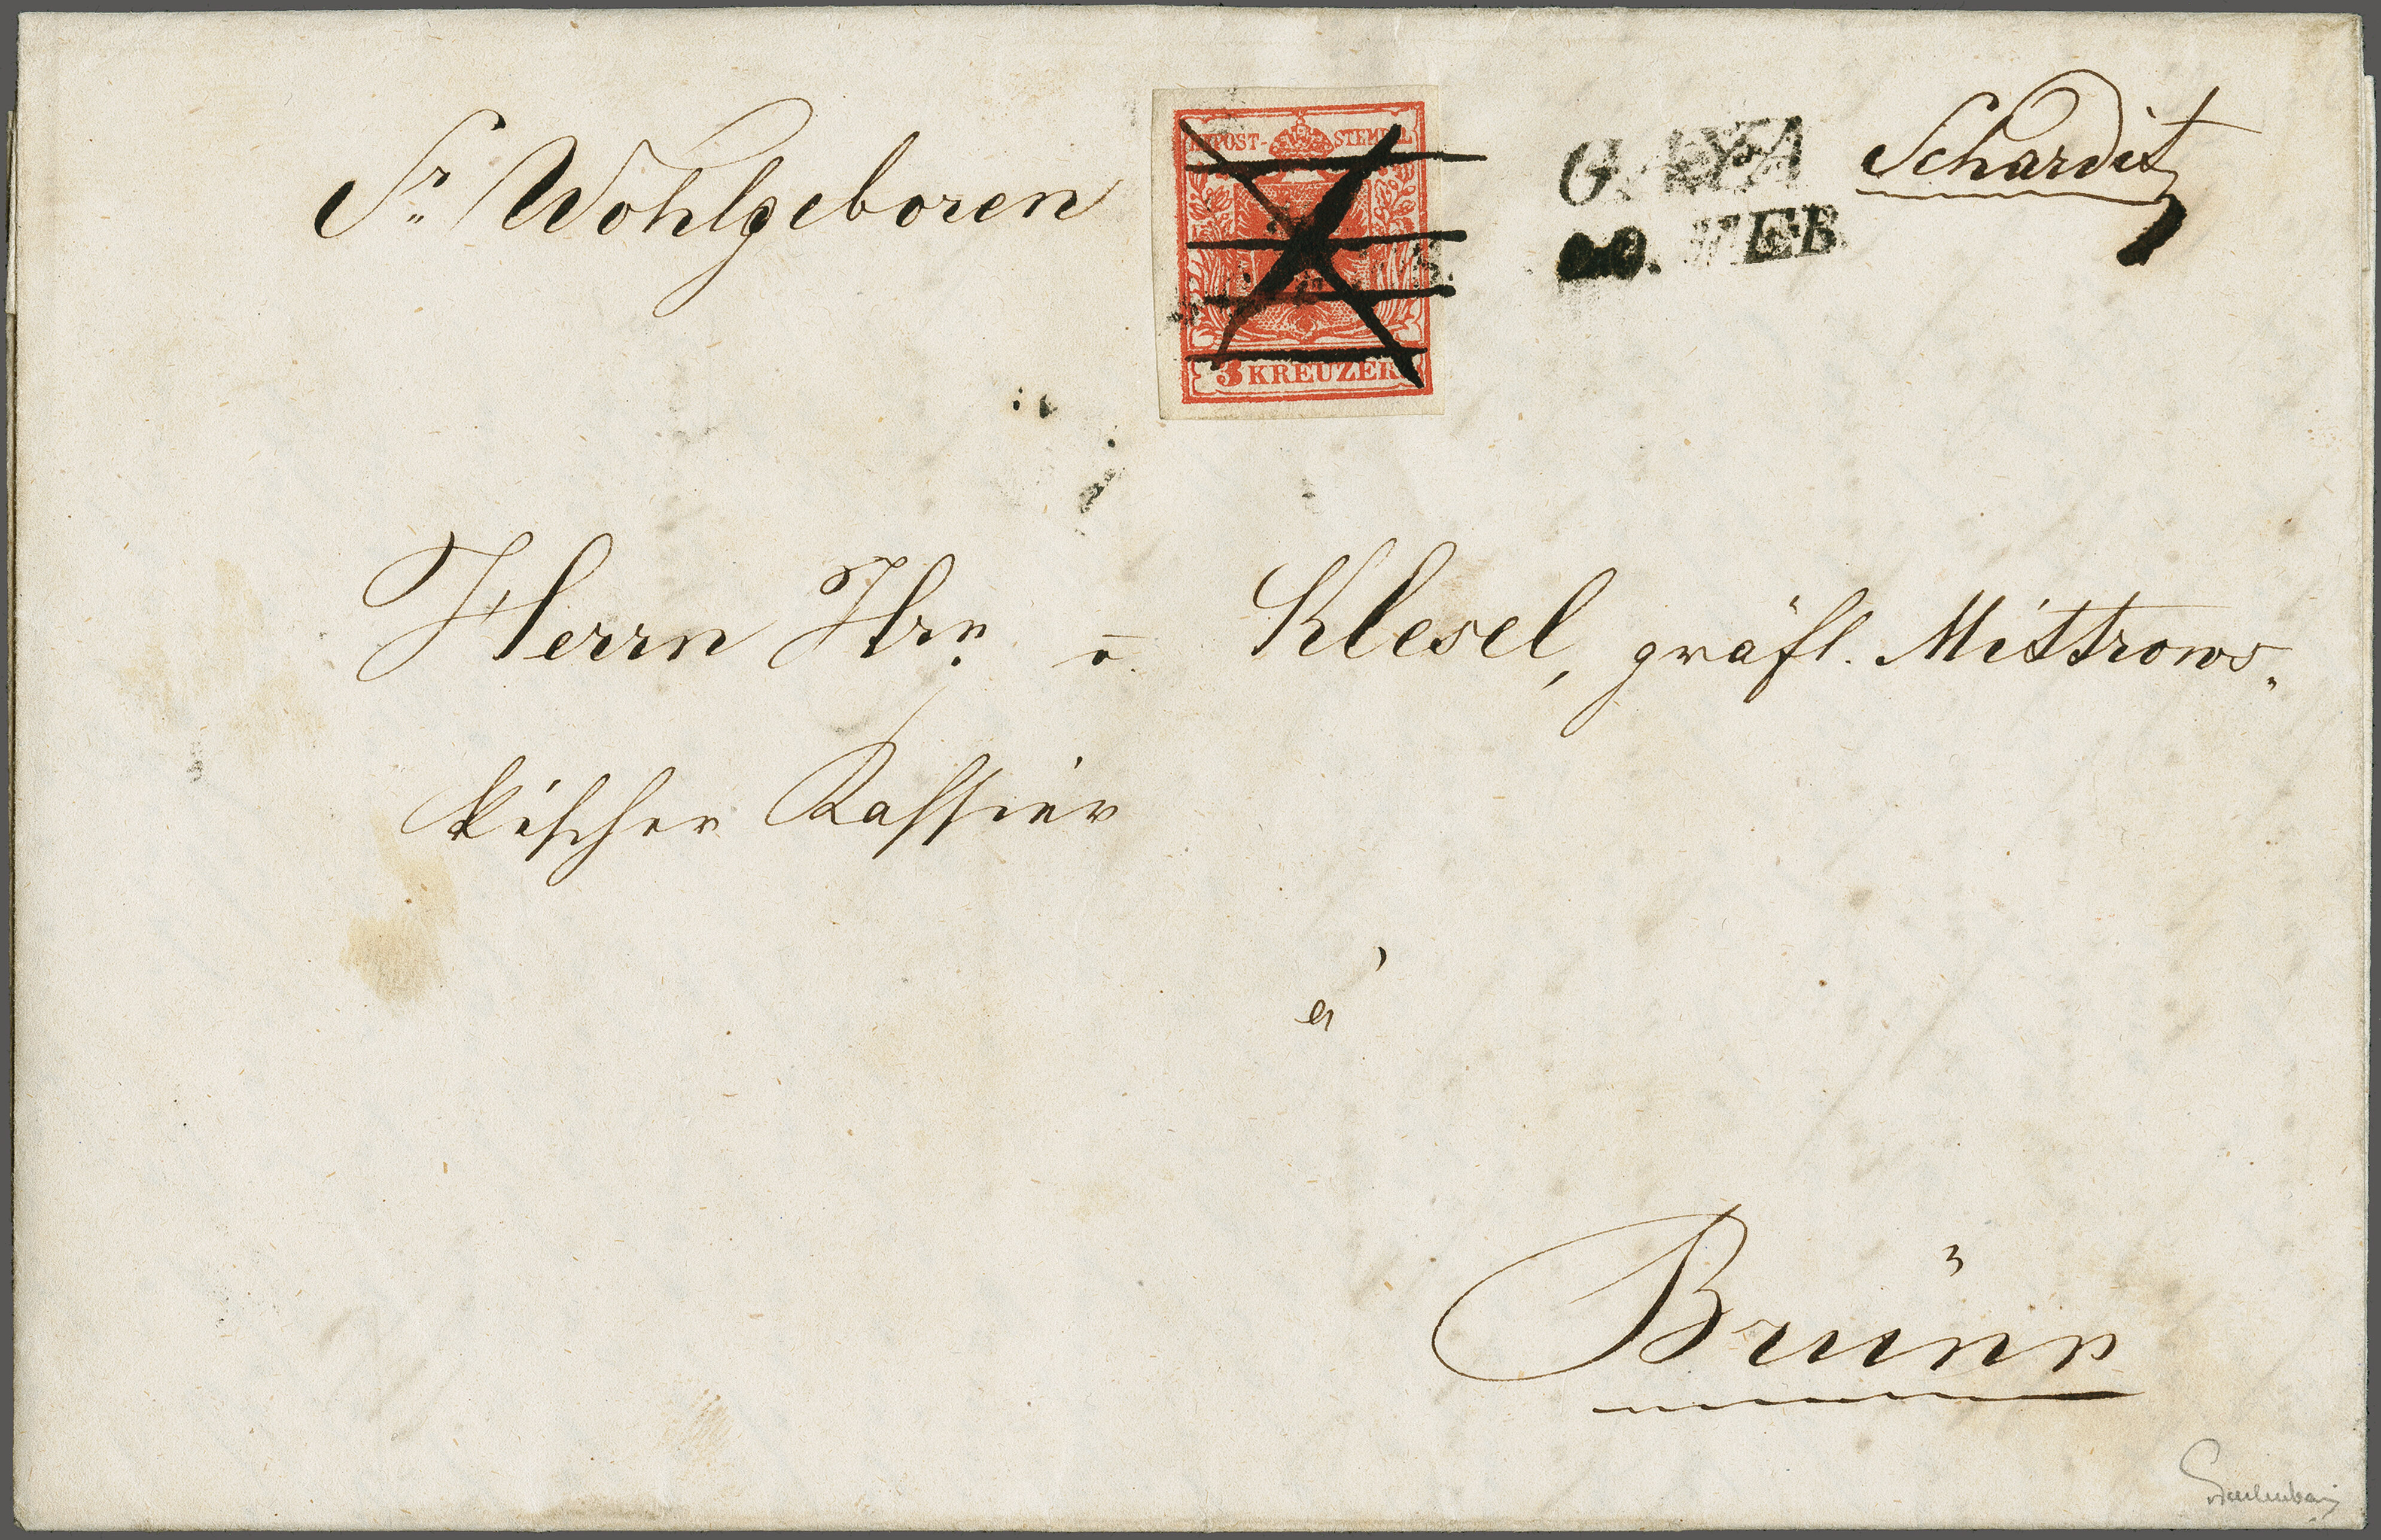 Sr. Wohlgeboren
KKPOST-STEMPEL
3 KREUZER
GAYA
20. FEB.
Schardit
Herrn Hrn. v. Klesel, gräfl. Mittrows-
kischer Kassier
à
Brünn